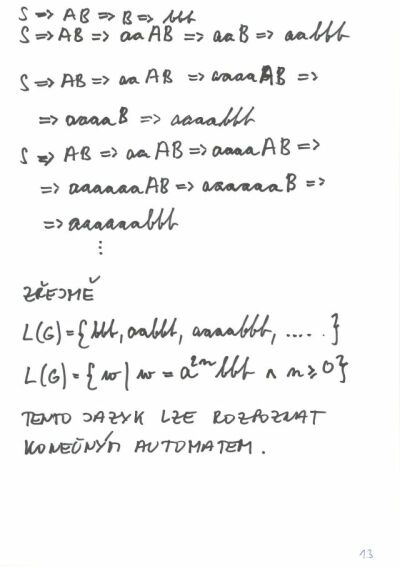 S => AB => B => bbb
S => AB => aaAB => aaB => aabbb
S => AB => aaAB => aaaaAB =>
=> aaaaB => aaaabbb
S => AB => aaAB => aaaaAB =>
=> aaaaaaAB => aaaaaaB =>
=> aaaaaabbb
⋮
ZŘEJMĚ
L(G) = {bbb, aabbb, aaaabbb, .....}
L(G) = {w | w = a²ⁿbbb ∧ n ≥ 0}
TENTO JAZYK LZE ROZPOZNAT
KONEČNÝM AUTOMATEM.
13